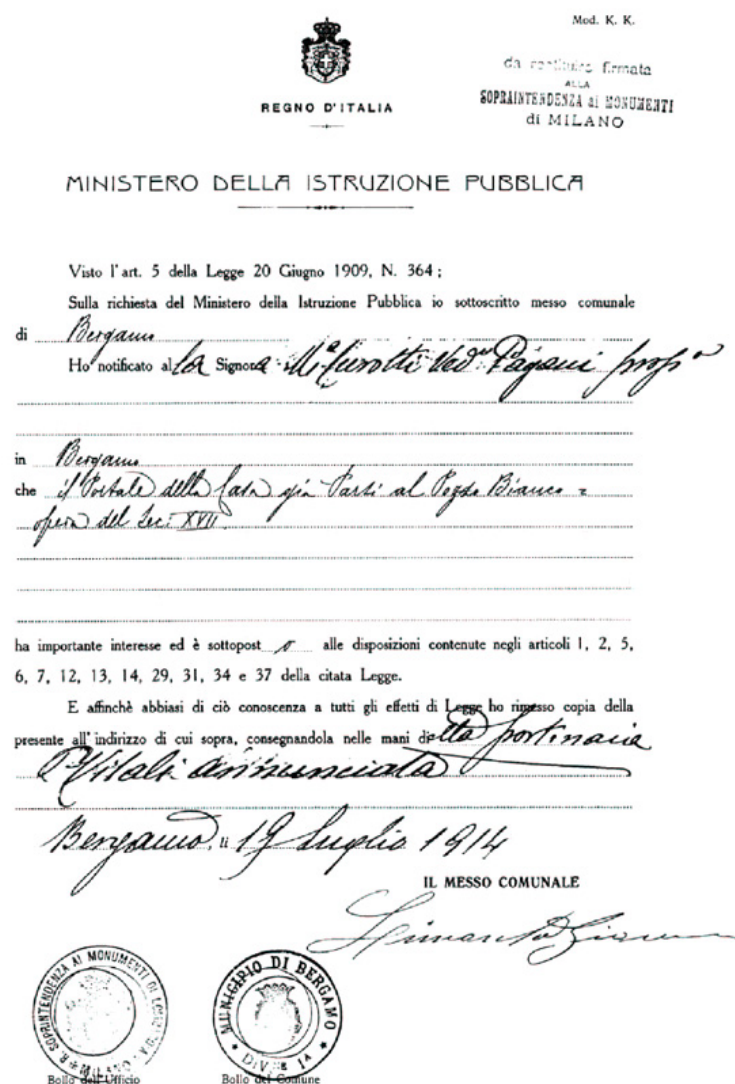 Mod. K. K.
da restituire firmata
ALLA
SOPRAINTENDENZA ai MONUMENTI
di MILANO
REGNO D'ITALIA
MINISTERO DELLA ISTRUZIONE PUBBLICA
Visto l'art. 5 della Legge 20 Giugno 1909, N. 364;
Sulla richiesta del Ministero della Istruzione Pubblica io sottoscritto messo comunale
di Bergamo
Ho notificato alla Signora Ved Pagani
in Bergamo
che il Portale della Casa già al Pozzo Bianco =
opera del Sec: XVII
ha importante interesse ed è sottopost o alle disposizioni contenute negli articoli 1, 2, 5,
6, 7, 12, 13, 14, 29, 31, 34 e 37 della citata Legge.
E affinchè abbiasi di ciò conoscenza a tutti gli effetti di Legge ho rimesso copia della
presente all'indirizzo di cui sopra, consegnandola nelle mani della portinaia
Vitali annunciata
Bergamo, li 19 Luglio 1914
IL MESSO COMUNALE
R. SOPRINTENDENZA AI MONUMENTI DI MILANO
MUNICIPIO DI BERGAMO
Bollo dell'Ufficio
Bollo del Comune